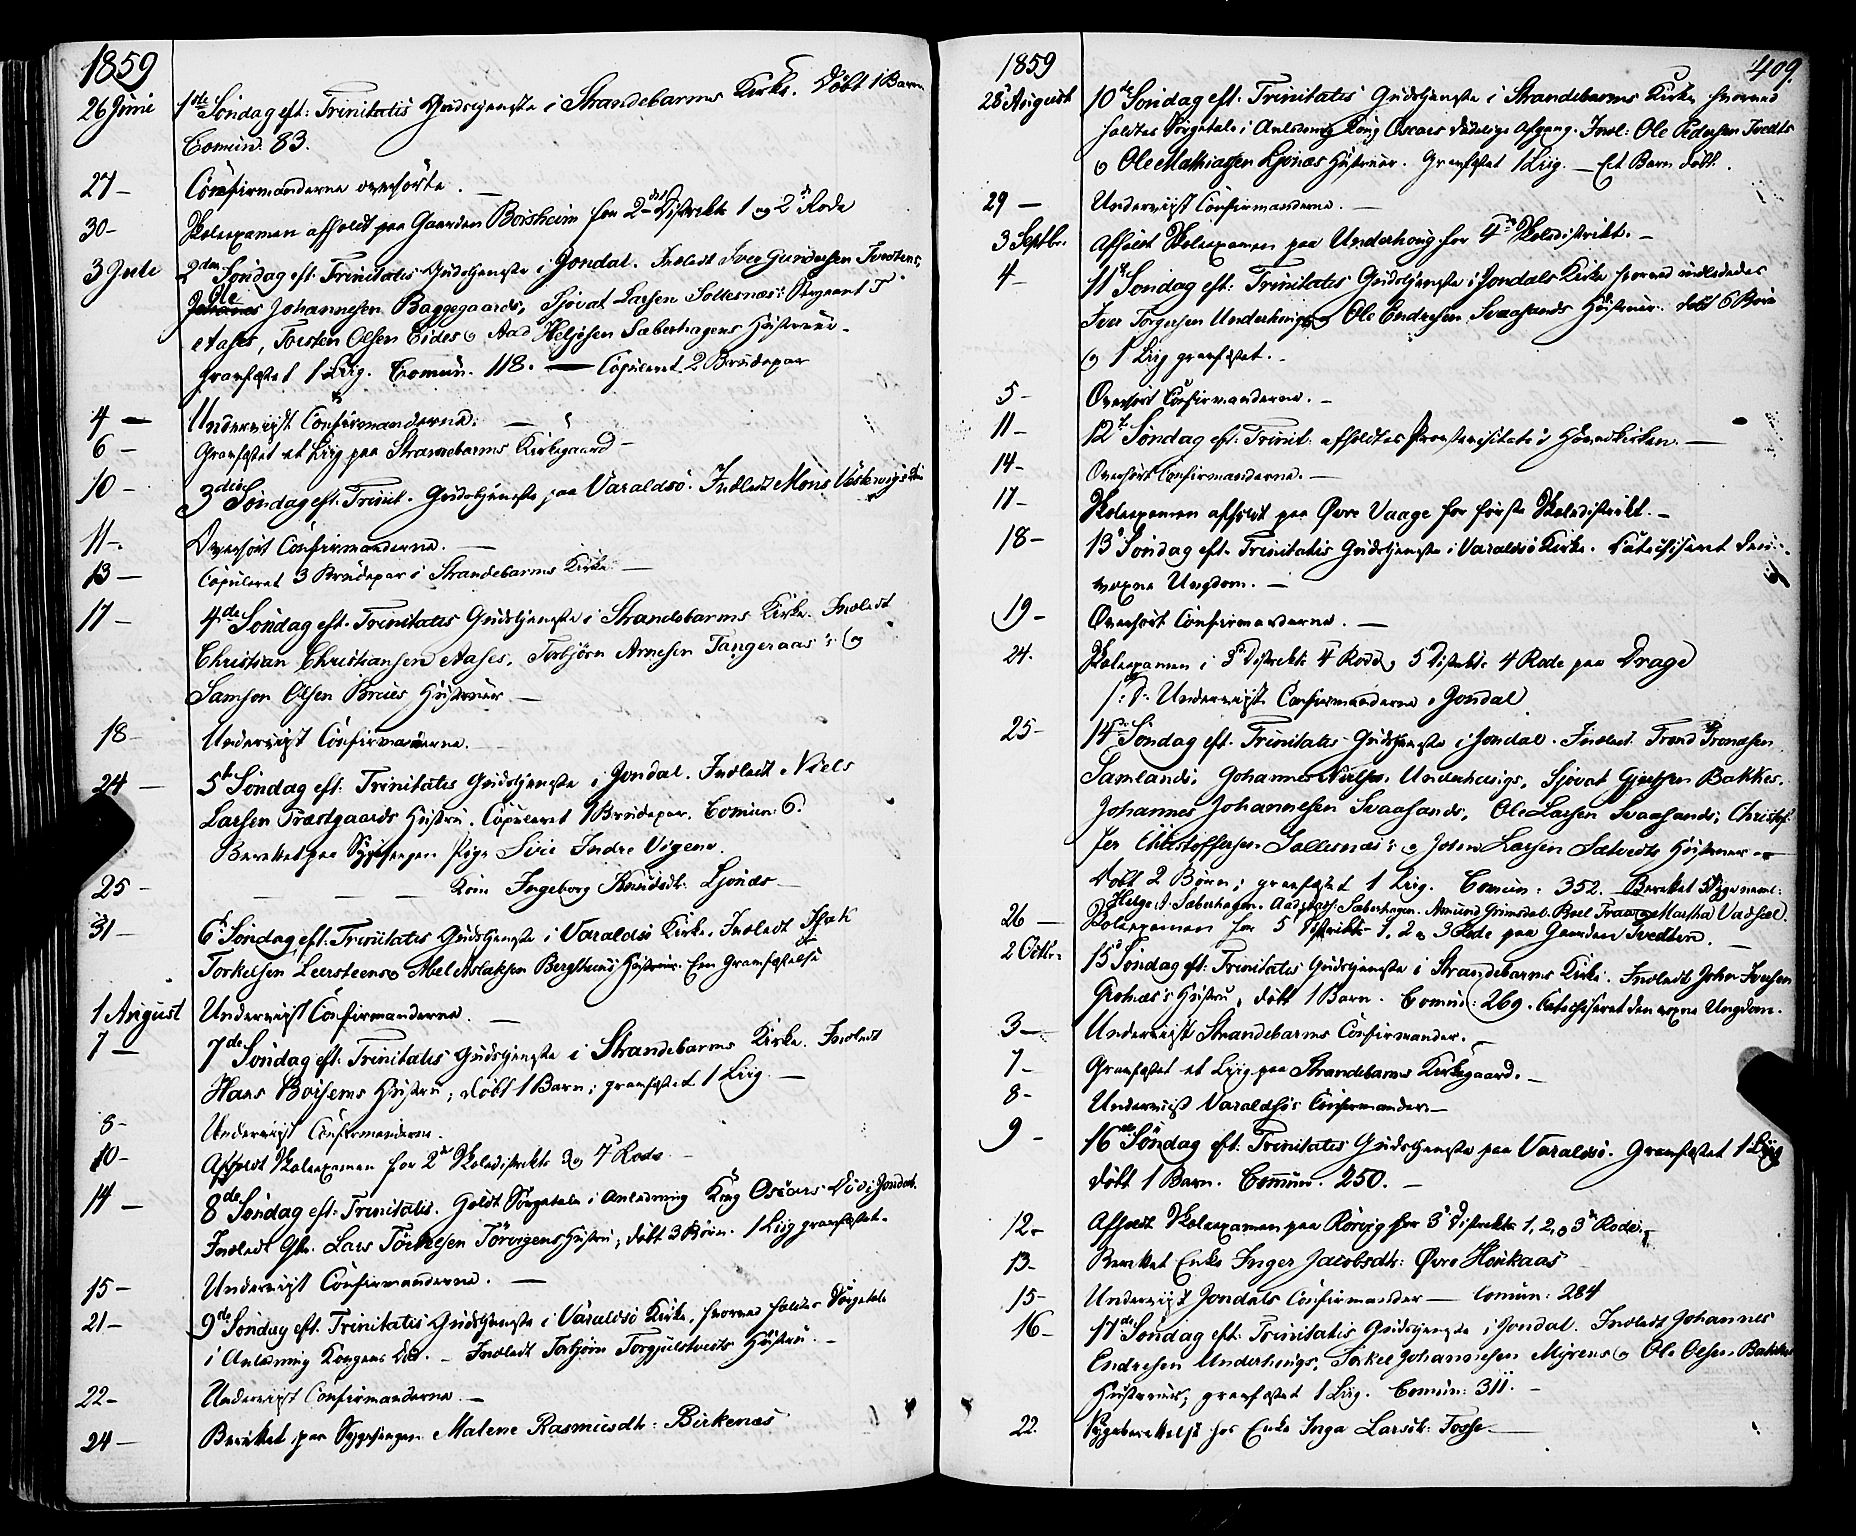 1859
26 Junii 1ste Söndag eft: Trinitatis Gudstjeneste i Strandebarms Kirke. Döbt 1 Barn
Comun. 83.
27 – Confirmanderne overhörte. –
30 – Skoleexamen afholdt paa Gaarden Börsheim for 2det Distrikts 1 og 2den Rode
3 Julii 2den Söndag eft: Trinitatis Gudstjeneste i Jondal. Indledt Iver Gundersen Tvedtens,
Ole
Johannes Johannesen Baggegaards, Sjovat Larsen Sollesnæs:
Aases, Torsten Olsen Eides og Aad Helgesen Sæberhagens Hustruer.
Graafæstet 1 Liig. Comun. 118. — Copuleret 2 Brudepar
4 – Underviist Confirmanderne. –
6 – Graafæstet et Liig paa Strandebarms Kirkegaard –
10 – 3die Söndag eft. Trinit. Gudstjeneste paa Varaldsö. Indledt Mons
11 – Overhört Confirmanderne. –
13 – Copuleret 3 Brudepar i Strandebarms Kirke. –
17 – 4de Söndag eft. Trinitatis Gudstjeneste i Strandebarms Kirke. Indledt
Christian Christiansen Aases, Torbjörn Arnesen Tangeraas's og
Samson Olsen Brues Hustruer. –
18 – Underviist Confirmanderne. –
24 – 5te Söndag eft: Trinitatis Gudstjeneste i Jondal. Indledt Niels
Larsen Præstgaards Hustru. Copuleret 1 Brudepar. Comun: 6.
Berettet paa Sygesengen Pige Siri Indre Vigene.
25 – — — — Kone Ingeborg Knudsdt. Ljonæs –
31 – 6te Söndag eft: Trinitatis Gudstjeneste i Varaldsö Kirke. Indledt Isak
Torkelsen Leersteens og Abel Aslaksen Bergthuns Hustruer. Een Graafæstelse
1 August Underviist Confirmanderne. –
7 – 7de Söndag eft: Trinitatis Gudstjeneste i Strandebarms Kirke. Indledt
Hans Börsems Hustru; döbt 1 Barn; graafæstet 1 Liig. –
8 – Underviist Confirmanderne.
10 – Afholdt Skoleexamen for 2det Skoledistrikts 3 og 4de Rode –
14 – 8de Söndag eft: Trinitatis. Holdt Sörgetale i Anledning Kong Oscars Död i Jondal.
Indledt Lars Törkelsen Törvigens Hustru; döbt 3 Börn. 1 Liig graafæstet.
15 – Underviist Confirmanderne. –
21 – 9de Söndag eft. Trinitatis Gudstjeneste i Varaldsö Kirke, hvorved holdtes Sörgetale
i Anledning Kongens Död. – Indledt Torbjörn Torgjulstvedts Hustru. –
22 – Underviist Confirmanderne. –
24 – Berettet paa Sygesengen Malene Rasmusdt: Birkenæs
1859
409.
28 August 10de Söndag eft: Trinitatis Gudstjeneste i Strandebarms Kirke hvorved
holdtes Sörgetale i Anledning Kong Oscars dödelige Afgang. Indl: Ole Pedersen Tvedts
og Ole Mathiassen Ljonæs Hustruer. Graafæstet 1 Liig. — Et Barn döbt.
29 – Underviist Confirmanderne. –
3 Septbr. Afholdt Skoleexamen paa Underhoug for 4de Skoledistrikt. –
4 – 11te Söndag eft: Trinitatis Gudstjeneste i Jondals Kirke hvorved indlededes
Iver Torgersen Underhougs og Ole Endresen Svaasands Hustruer. Döbt 6 Börn
og 1 Liig graafæstet. –
5 – Overhört Confirmanderne. –
11 – 12te Söndag eft: Trinit: afholdtes Provstevisitats i Hovedkirken. –
14 – Overhört Confirmanderne. –
17 – Skoleexamen afholdt paa Övre Vaage for förste Skoledistrikt. –
18 – 13de Söndag eft. Trinitatis Gudstjeneste i Varaldsö Kirke. Catechiseret den
voxne Ungdom. –
19 – Overhört Confirmanderne. –
24. Skoleexamen i 3de Distrikts 4 Rode og 5 Distrikts 4 Rode paa Drage
S: D. Underviist Confirmanderne i Jondal.
25 – 14de Söndag eft. Trinitatis Gudstjeneste i Jondal. Indledt Trond Trondsen
Samlands, Johannes Nielsen Underhougs, Sjovat Gjertsen Bakkes,
Johannes Johannesen Svaasands, Ole Larsen Svaasands, Christof-
fer Christoffersen Sallesnæs's og John Larsen Sætvedts Hustruer –
Döbt 2 Börn; graafæstet 1 Liig. Comun: 352. Berettet 5 Syge neml:
Helge A. Sæberhagen. Aad Sæberhagen. Amund Grimsdal. Boel Traa og Martha Vadsel.
26 – Skoleexamen for 5 Distrikts 1, 2 og 3 Rode paa Gaarden Tvedten. –
2 Octbr. 15de Söndag eft: Trinitatis Gudstjeneste i Strandebarms Kirke. Indledt John Iversen
Grotnæs's Hustru; döbt 1 Barn. Comun: 269. Catechiseret den voxne Ungdom.
3 – Underviist Strandebarms Confirmander. –
7 – Graafæstet et Liig paa Strandebarms Kirkegaard. –
8 – Underviist Varaldsös Confirmander –
9 – 16de Söndag eft: Trinitatis Gudstjeneste paa Varaldsö. Graafæstet 1 Liig
döbt 1 Barn. Comun. 250. –
12 – Afholdt Skoleexamen paa Rörvig for 3die Distrikts 1, 2, og 3die Rode. –
13 – Berettet Enke Inger Jacobsdt: Övre Haukaas
15 – Underviist Jondals Confirmander — Comun: 284
16 – 17de Söndag eft: Trinitatis Gudstjeneste i Jondal. Indledt Johannes
Endresen Underhougs, Torkel Johannesen Myrens og Ole Olsen Bakkes
Hustruer; graafæstet 1 Liig. Comun: 311. –
22. Sygeberettelse hos Enke Inga Larsdt: Fosse. –